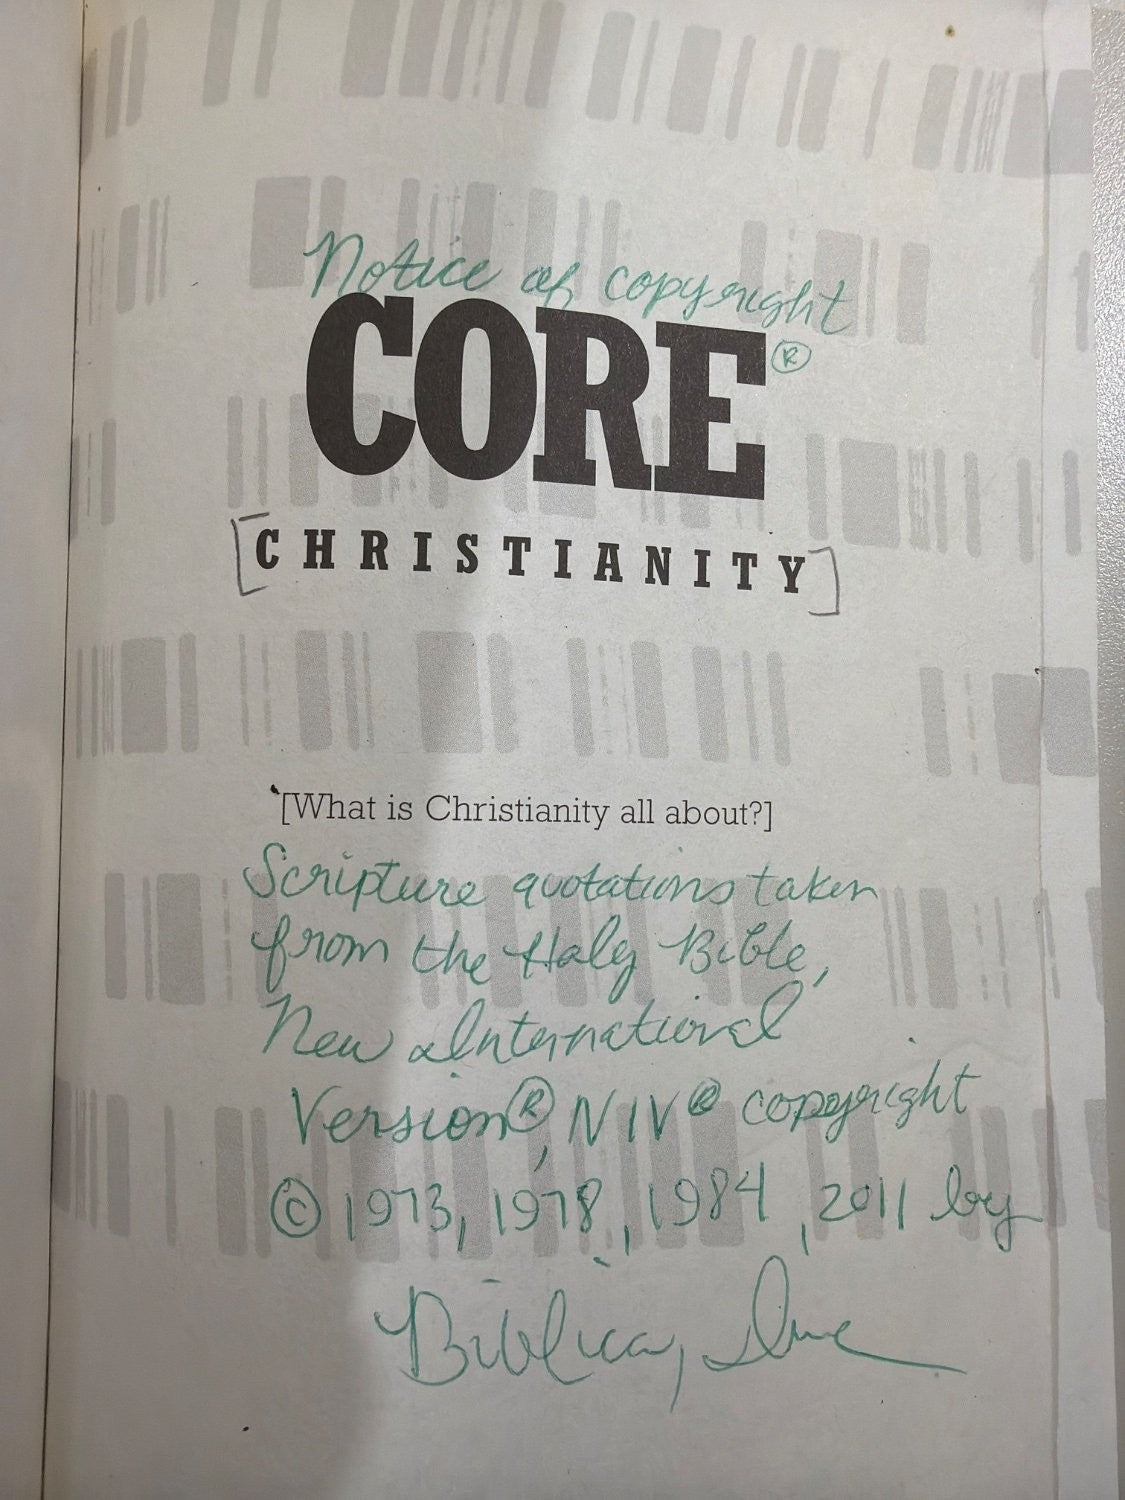 Notice of copyright
CORE®
[CHRISTIANITY]
[What is Christianity all about?]
Scripture quotations taken
from the Holy Bible,
New International
Version®, NIV® copyright
© 1973, 1978, 1984, 2011 by
Biblica, Inc